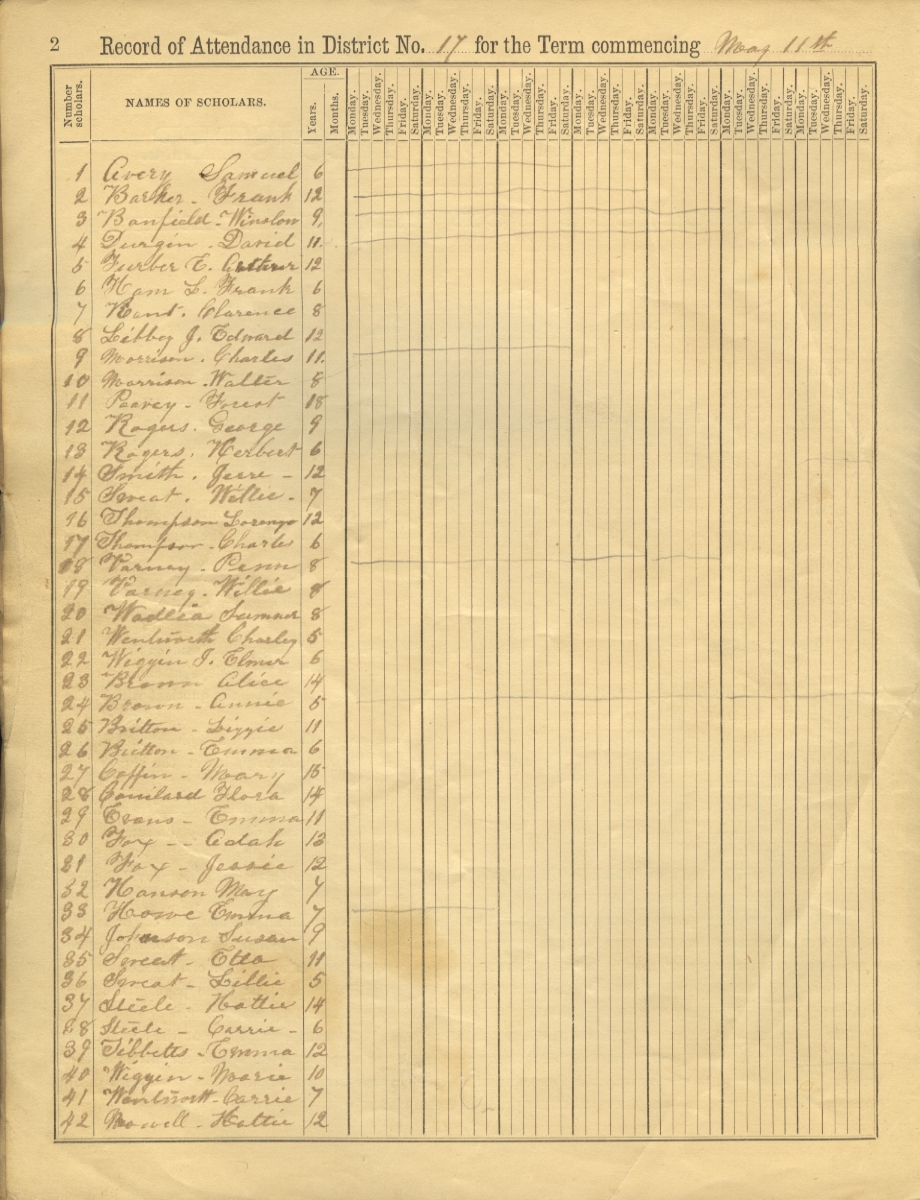 2 Record of Attendance in District No. 17 for the Term commencing May 11st
Number scholars. NAMES OF SCHOLARS. AGE. Years. Months. Monday. Tuesday. Wednesday. Thursday. Friday. Saturday. Monday. Tuesday. Wednesday. Thursday. Friday. Saturday. Monday. Tuesday. Wednesday. Thursday. Friday. Saturday. Monday. Tuesday. Wednesday. Thursday. Friday. Saturday. Monday. Tuesday. Wednesday. Thursday. Friday. Saturday. Monday. Tuesday. Wednesday. Thursday. Friday. Saturday. Monday. Tuesday. Wednesday. Thursday. Friday. Saturday.
1 Avery Samuel 6
2 Barker - Frank 12
3 Banfield - Winslow 9
4 Durgin - David 11
5 Furber E. Arthur 12
6 Ham L. Frank 6
7 Kent. Clarence 8
8 Libbey J. Edward 12
9 Morrison. Charles 11
10 Morrison. Walter 8
11 Peavey - Forest 18
12 Rogers. George 9
13 Rogers. Herbert 6
14 Smith. Jerre - 12
15 Sweat. Willie - 7
16 Thompson Lorenzo 12
17 Thompson - Charles 6
18 Varney - Penn 8
19 Varney. Willie 8
20 Wadlia Sumner 8
21 Wentworth Charley 5
22 Wiggin J. Elmer 6
23 Brown Alice 14
24 Brown - Annie 5
25 Britton - Lizzie 11
26 Britton - Emma 6
27 Coffin - Mary 15
28 Flora 14
29 Evans - Emma 11
30 Fox -- Adah 13
31 Fox - Jessie 12
32 Hanson May 7
33 Howe Emma 7
34 Johnson Susan 9
35 Sweat - Etta 11
36 Sweat - Lillie 5
37 Steele - Hattie 14
38 Steele - Carrie - 6
39 Tibbetts - Emma 12
40 Wiggin - Marie 10
41 Wentworth - Carrie 7
42 Howell - Hattie 12